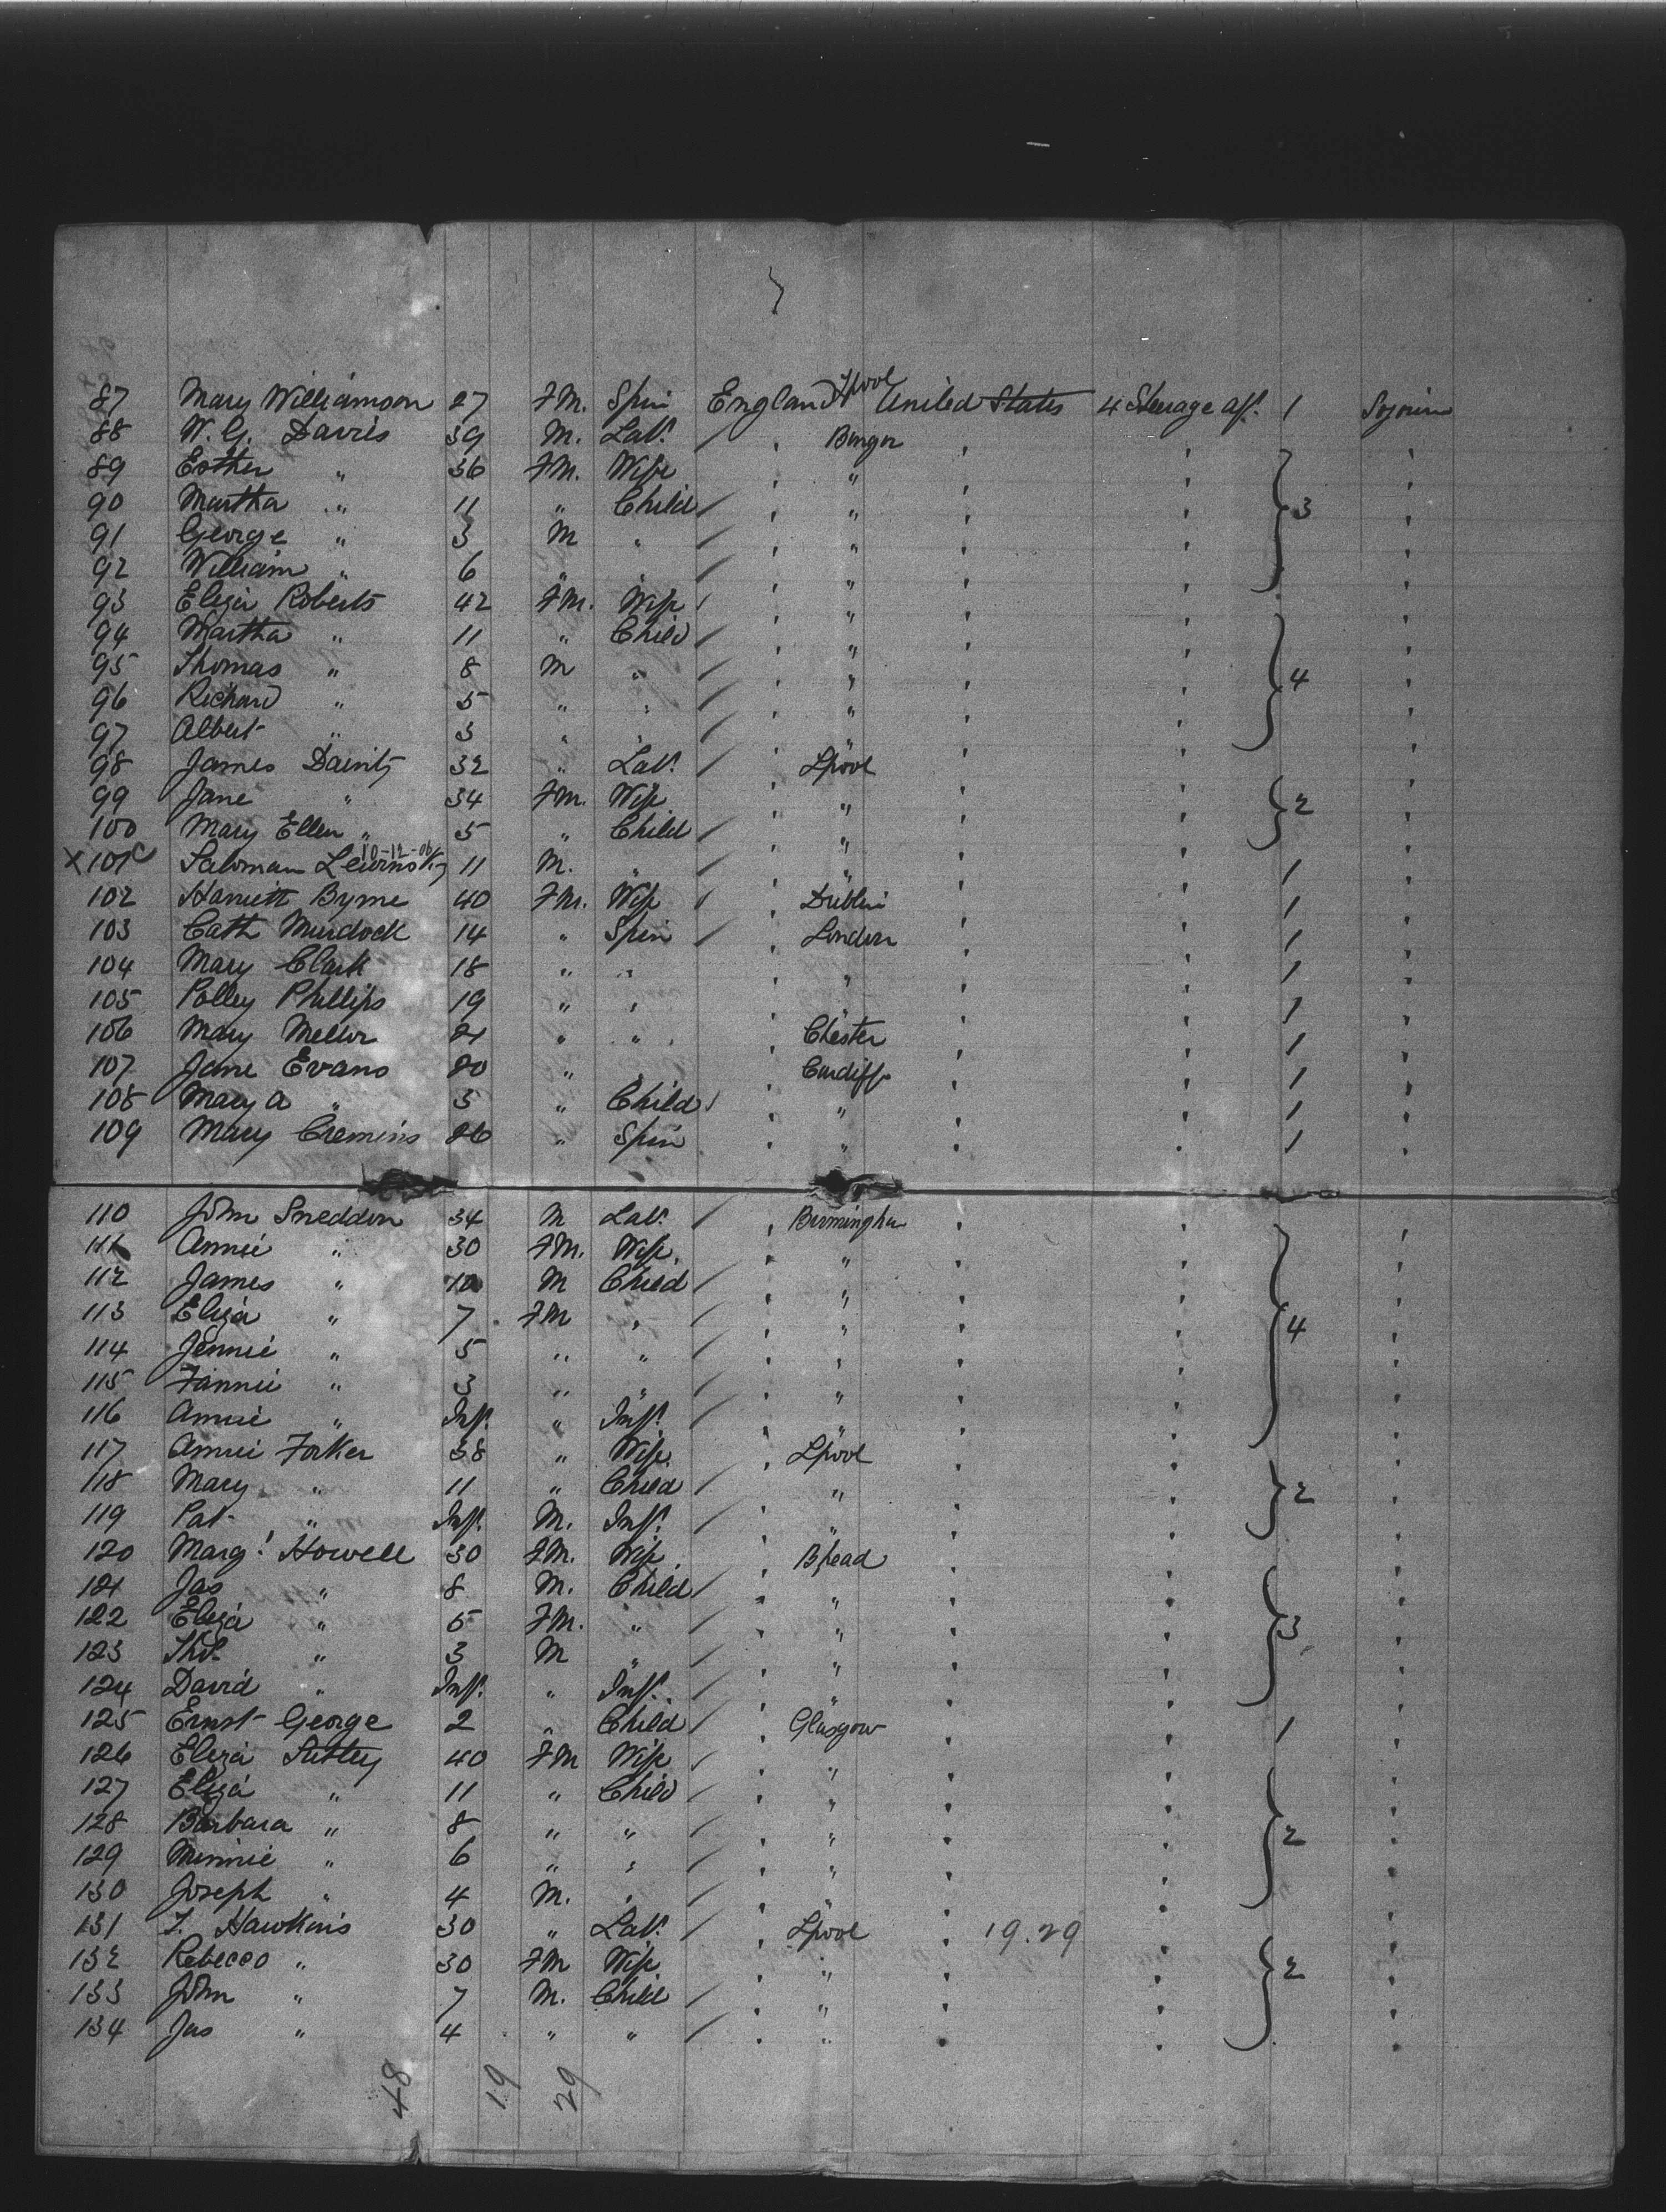 87 Mary Williamson 27 FM. Spin England Lpool United States 4 Steerage aft. 1 Sojourn
88 W. G. Davis 39 M. Lab. / , Bangor , , ,
89 Esther " 36 FM. Wife , " , , ,
90 Martha " 11 " Child / , " , , } 3 ,
91 George " 3 M " / , " , , ,
92 William " 6 " " / , " , , ,
93 Eliza Roberts 42 FM. Wife / , " , , ,
94 Martha " 11 " Child / , " , , ,
95 Thomas " 8 M " / , " , , } 4 ,
96 Richard " 5 " " / , " , , ,
97 Albert " 3 " " / , " , , ,
98 James Dainty 32 " Lab. / , Lpool , , ,
99 Jane " 34 FM. Wife , " , , } 2 ,
100 Mary Ellen " 5 " Child / , " , , ,
10-12-06
X 101 c Saloman Lewinsky 11 M. " / , " , , 1 ,
102 Harriett Byrne 40 FM. Wife / , Dublin , , 1 ,
103 Cath Murdock 14 " Spin / , London , , 1 ,
104 Mary Clark 18 " " , " , , 1 ,
105 Polley Phillips 19 " " , " , , 1 ,
106 Mary Mellor 21 " " , Chester , , 1 ,
107 Jane Evans 20 " " , Cardiff , , 1 ,
108 Mary A " 3 " Child / , " , , 1 ,
109 Mary Cremins 26 " Spin , " , , 1 ,
110 John Sneddon 34 M Lab. / , Birmingham , , ,
111 Annie " 30 FM. Wife , " , , ,
112 James " M Child / , " , , ,
113 Eliza " 7 FM " / , " , , } 4 ,
114 Jennie " 5 " " / , " , , ,
115 Fannie " 3 " " / , " , , ,
116 Annie " Inft. " Inft. / , " , , ,
117 Annie Forker 38 " Wife , Lpool , , ,
118 Mary " 11 " Child / , " , , } 2 ,
119 Pat " Inft. M. Inft. / , " , , ,
120 Margt. Howell 30 FM. Wife , Bhead , , ,
121 Jas " 8 M. Child / , " , , ,
122 Eliza " 5 FM. " / , " , , } 3 ,
123 Thos. " 3 M " / , " , , ,
124 David " Inft. " Inft. / , " , , ,
125 Ernst George 2 " Child / , Glasgow , , 1 ,
126 Eliza 40 FM Wife / , " , , ,
127 Eliza " 11 " Child / , " , , ,
128 Barbara " 8 " " / , " , , } 2 ,
129 Minnie " 6 " " / , " , , ,
130 Joseph " 4 M. " / , " , , ,
131 T. Hawkins 30 " Lab. / , Lpool , 19.29 , ,
132 Rebecca " 30 FM Wife , " , , } 2 ,
133 John " 7 M. Child / , " , , ,
134 Jas " 4 " " / , " , , ,
48 19 29